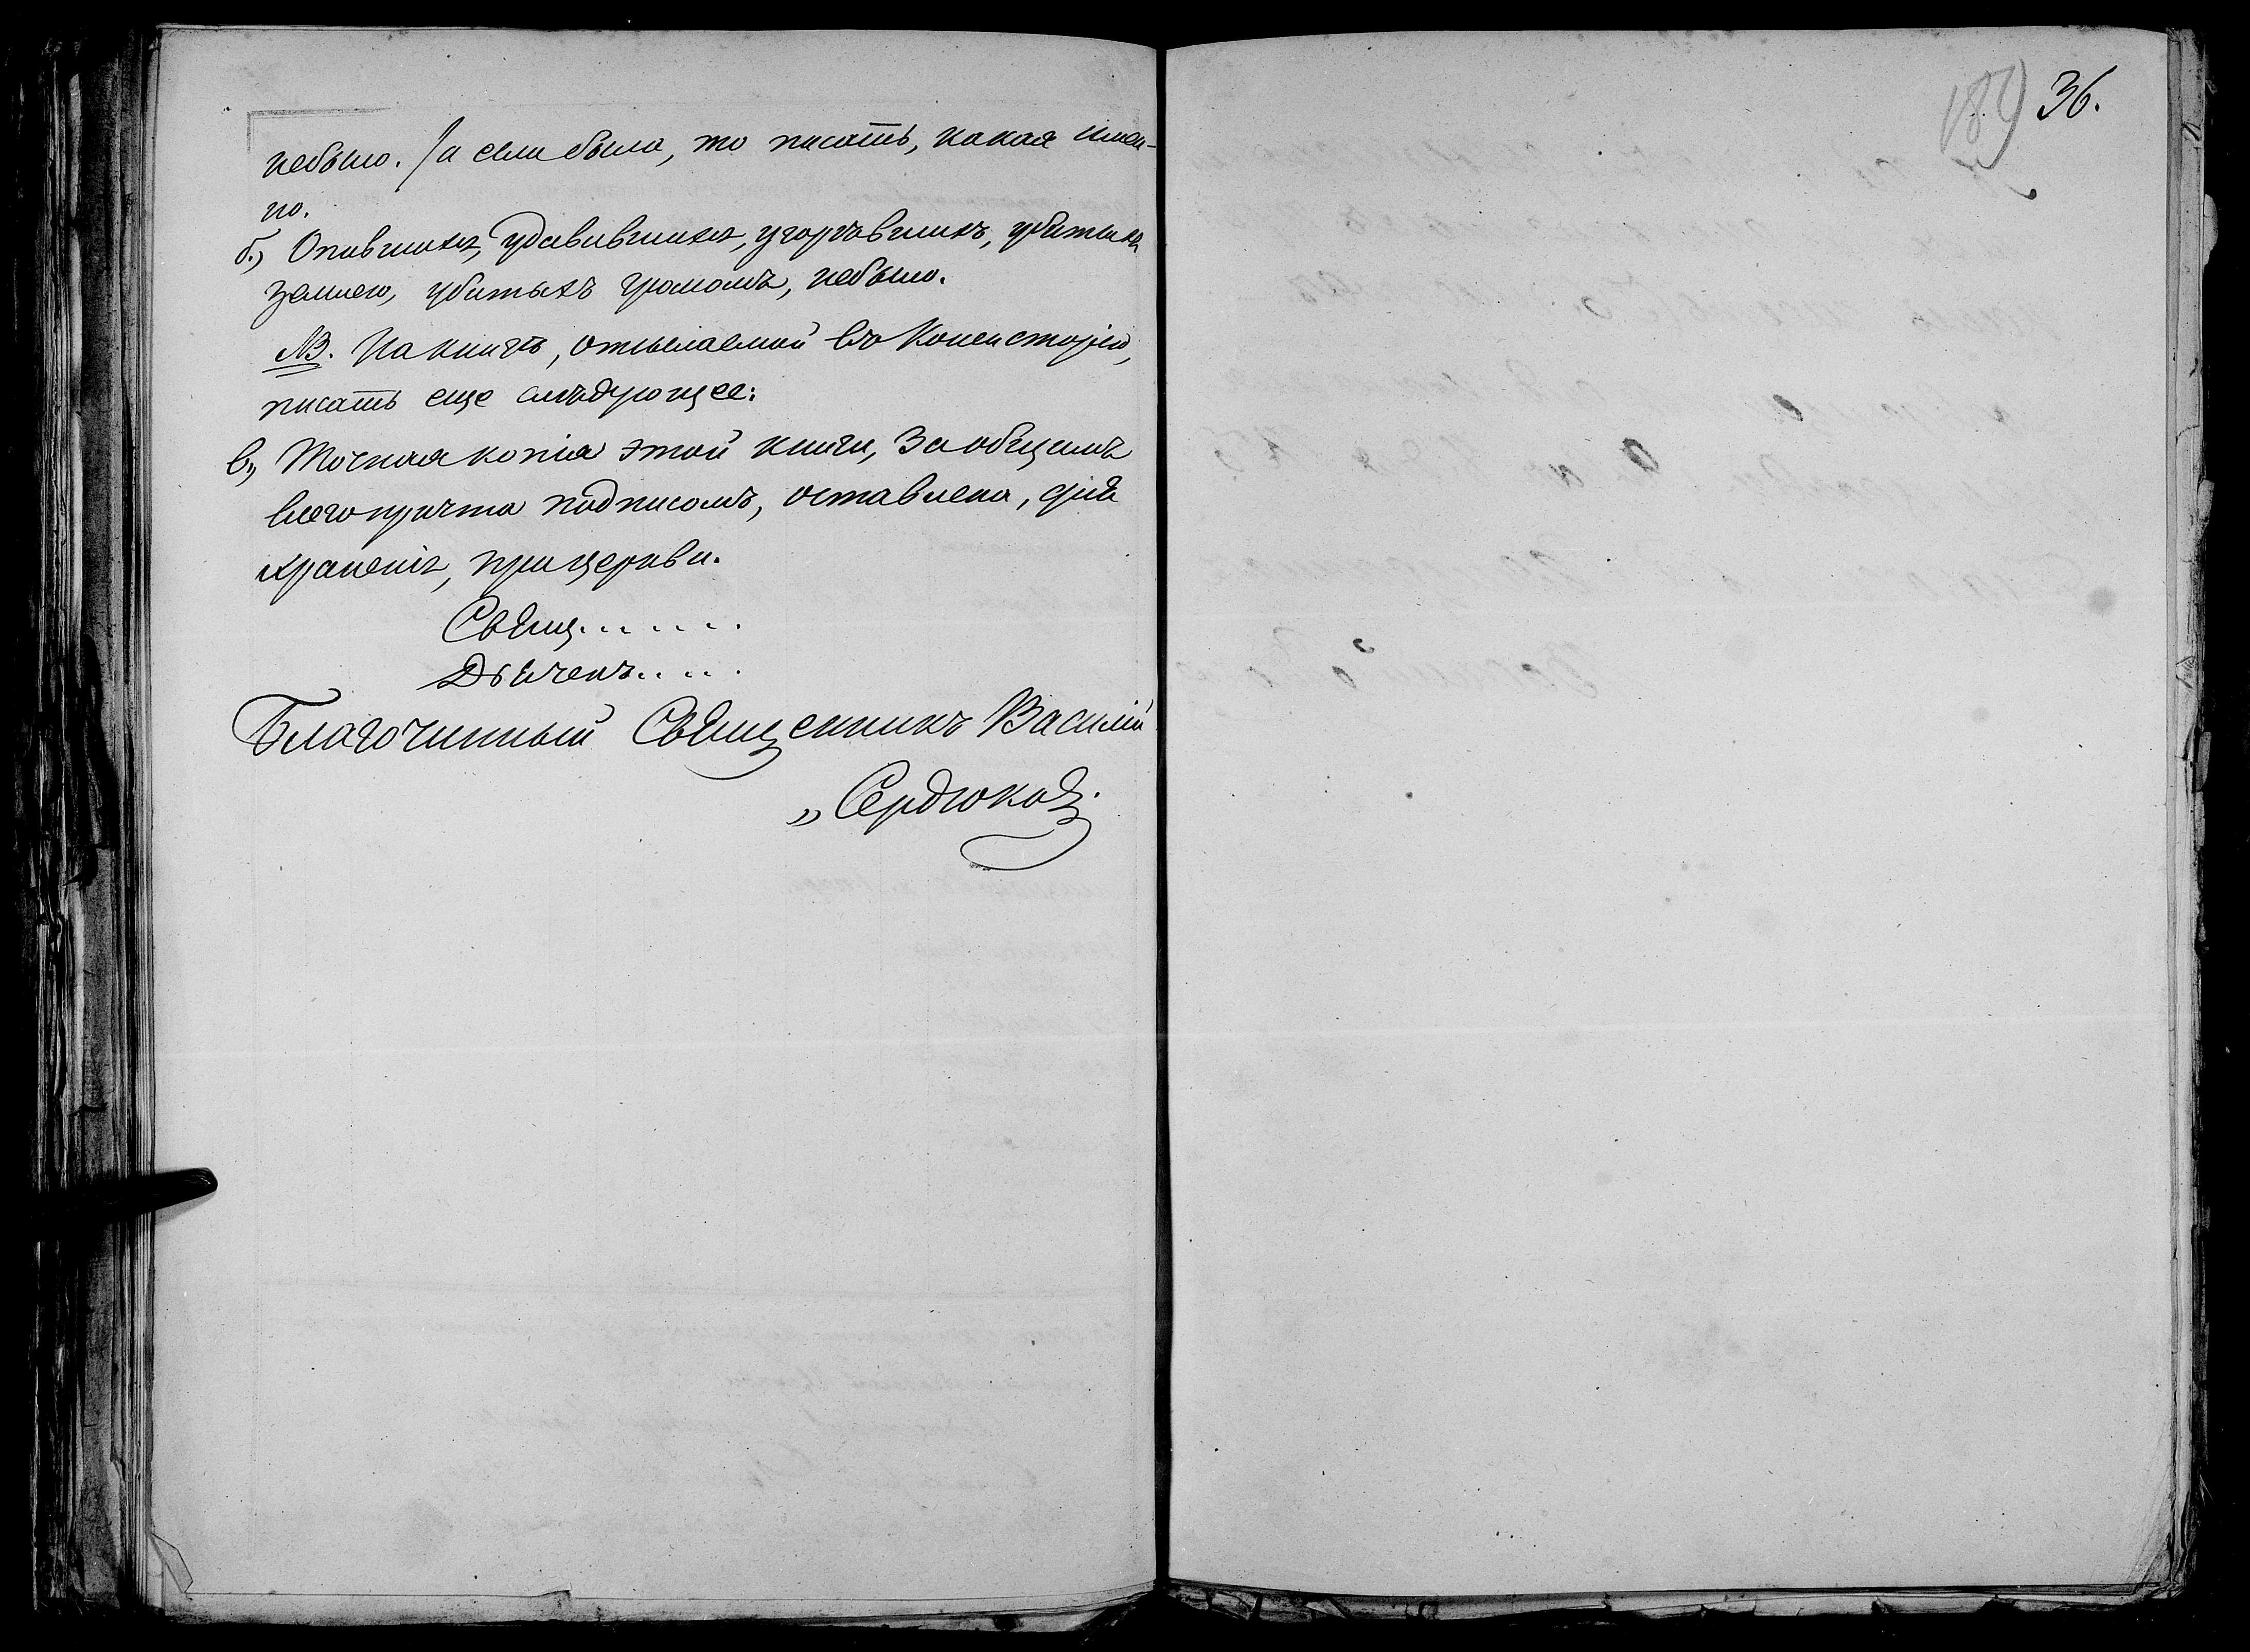 небыло. /а если была, то писать, какая имен-
но.
б.) Опившихся, удавившихся, угорѣвшихъ, убитыхъ
землею, убитыхъ громомъ, небыло.
NB. На книгѣ, отсылаемой въ Консисторію,
писать еще слѣдующее:
в,, Точная копія этой книги, за общимъ
всего причта подписомъ, оставлена, для
храненія, при церкви.
Свящ.......
Дьячекъ.....
Благочинный Священникъ Василій
,, Сердюковъ.
189 36.